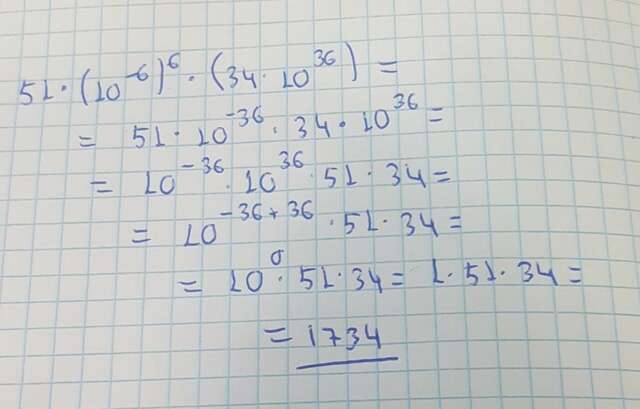 51·(10⁻⁶)⁶·(34·10³⁶)=
= 51·10⁻³⁶·34·10³⁶=
= 10⁻³⁶·10³⁶·51·34=
= 10⁻³⁶⁺³⁶·51·34=
= 10⁰·51·34= 1·51·34=
= 1734